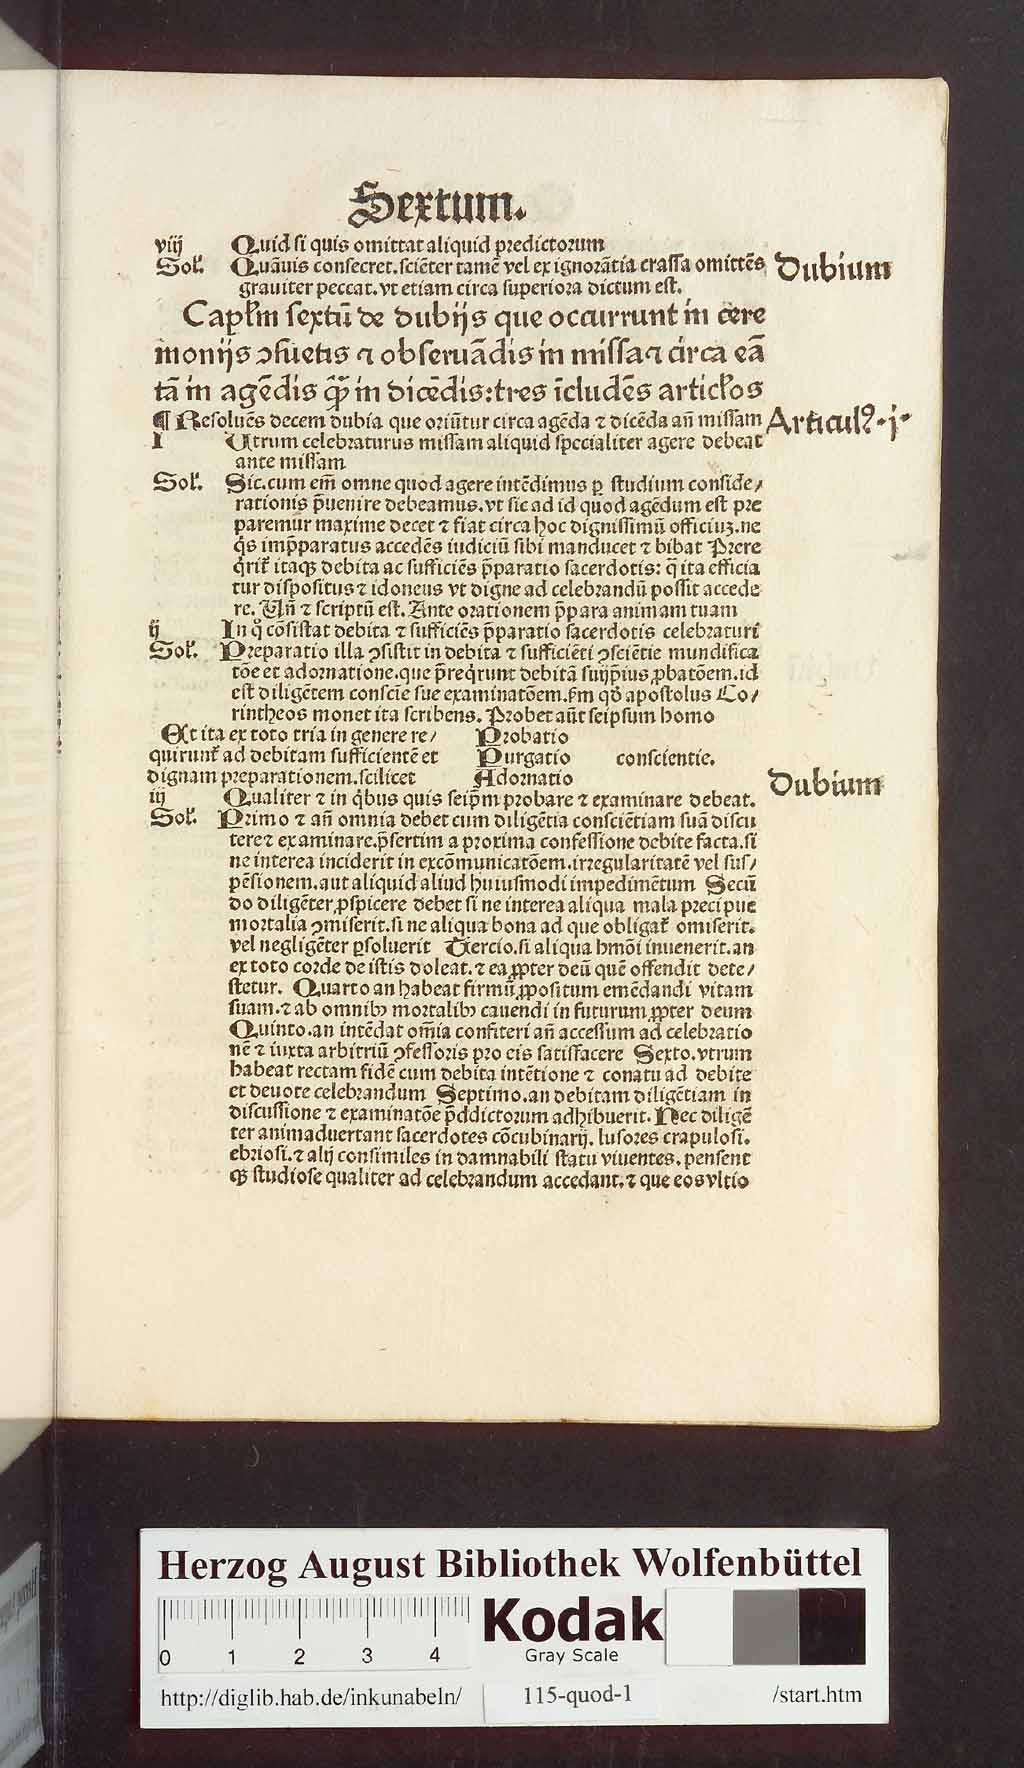 Sextum.
viij Quid si quis omittat aliquid predictorum
Sol. Quãuis consecret.sciẽter tamẽ vel ex ignorãtia crassa omittẽs Dubium
grauiter peccat.vt etiam circa superiora dictum est.
Capľm sextũ de dubijs que occurrunt in cere
monijs ꝯsuetis ⁊ obseruãdis in missa ⁊ circa eã
tã in agẽdis q̃ꝫ in dicẽdis:tres ĩcludẽs articľos
¶ Resoluẽs decem dubia que oriũtur circa agẽda ⁊ dicẽda añ missam Articulꝰ.j.
I Utrum celebraturus missam aliquid specialiter agere debeat
ante missam
Sol. Sic.cum em̃ omne quod agere intẽdimus ꝑ studium conside/
rationis p̃uenire debeamus.vt sic ad id quod agẽdum est pre
paremur maxime decet ⁊ fiat circa hoc dignissimũ officiuꝫ.ne
q̇s imp̃paratus accedẽs iudiciũ sibi manducet ⁊ bibat Prere
q̇rit᷑ itaqꝫ debita ac sufficiẽs p̃paratio sacerdotis: q̃ ita efficia
tur dispositus ⁊ idoneus vt digne ad celebrandũ possit accede
re. Uñ ⁊ scriptũ est. Ante orationem p̃para animam tuam
ij In q̊ cõsistat debita ⁊ sufficiẽs p̃paratio sacerdotis celebraturi
Sol. Preparatio illa ꝯsistit in debita ⁊ sufficiẽti ꝯsciẽtie mundifica
tõe et adornatione.que p̃req̇runt debitã suijp̃ius ꝓbatõem.id
est diligẽtem conscie sue examinatõem.ẜm qd̃ apostolus Co/
rintheos monet ita scribens. Probet aũt seipsum homo
Et ita ex toto tria in genere re/ Probatio
quirunt᷑ ad debitam sufficientẽ et Purgatio conscientie.
dignam preparationem.scilicet Adornatio
iij Qualiter ⁊ in q̇bus quis seip̃m probare ⁊ examinare debeat. Dubium
Sol. Primo ⁊ añ omnia debet cum diligẽtia consciẽtiam suã discu
tere ⁊ examinare.p̃sertim a proxima confessione debite facta.si
ne interea inciderit in excõmunicatõem.irregularitatẽ vel sus/
pẽsionem.aut aliquid aliud huiusmodi impedimẽtum Secũ
do diligẽter ꝓspicere debet si ne interea aliqua mala precipue
mortalia ꝯmiserit.si ne aliqua bona ad que obligat᷑ omiserit.
vel negligẽter ꝑsoluerit Tercio.si aliqua hmõi inuenerit.an
ex toto corde de istis doleat.⁊ ea ꝓpter deũ quẽ offendit dete/
stetur. Quarto an habeat firmũ ꝓpositum emẽdandi vitam
suam.⁊ ab omnibꝫ mortalibꝫ cauendi in futurum ꝓpter deum
Quinto.an intẽdat om̃ia confiteri añ accessum ad celebratio
nẽ ⁊ iuxta arbitriũ ꝯfessoris pro eis satisfacere Sexto.vtrum
habeat rectam fidẽ cum debita intẽtione ⁊ conatu ad debite
et deuote celebrandum Septimo.an debitam diligẽtiam in
discussione ⁊ examinatõe p̃ddictorum adhibuerit. Nec diligẽ
ter animaduertant sacerdotes cõcubinarij. lusores crapulosi.
ebriosi.⁊ alij consimiles in damnabili statu viuentes.pensent
qꝫ studiose qualiter ad celebrandum accedant.⁊ que eos vltio
Herzog August Bibliothek Wolfenbüttel
0 1 2 3 4
Kodak
Gray Scale
http://diglib.hab.de/inkunabeln/ 115-quod-1 /start.htm